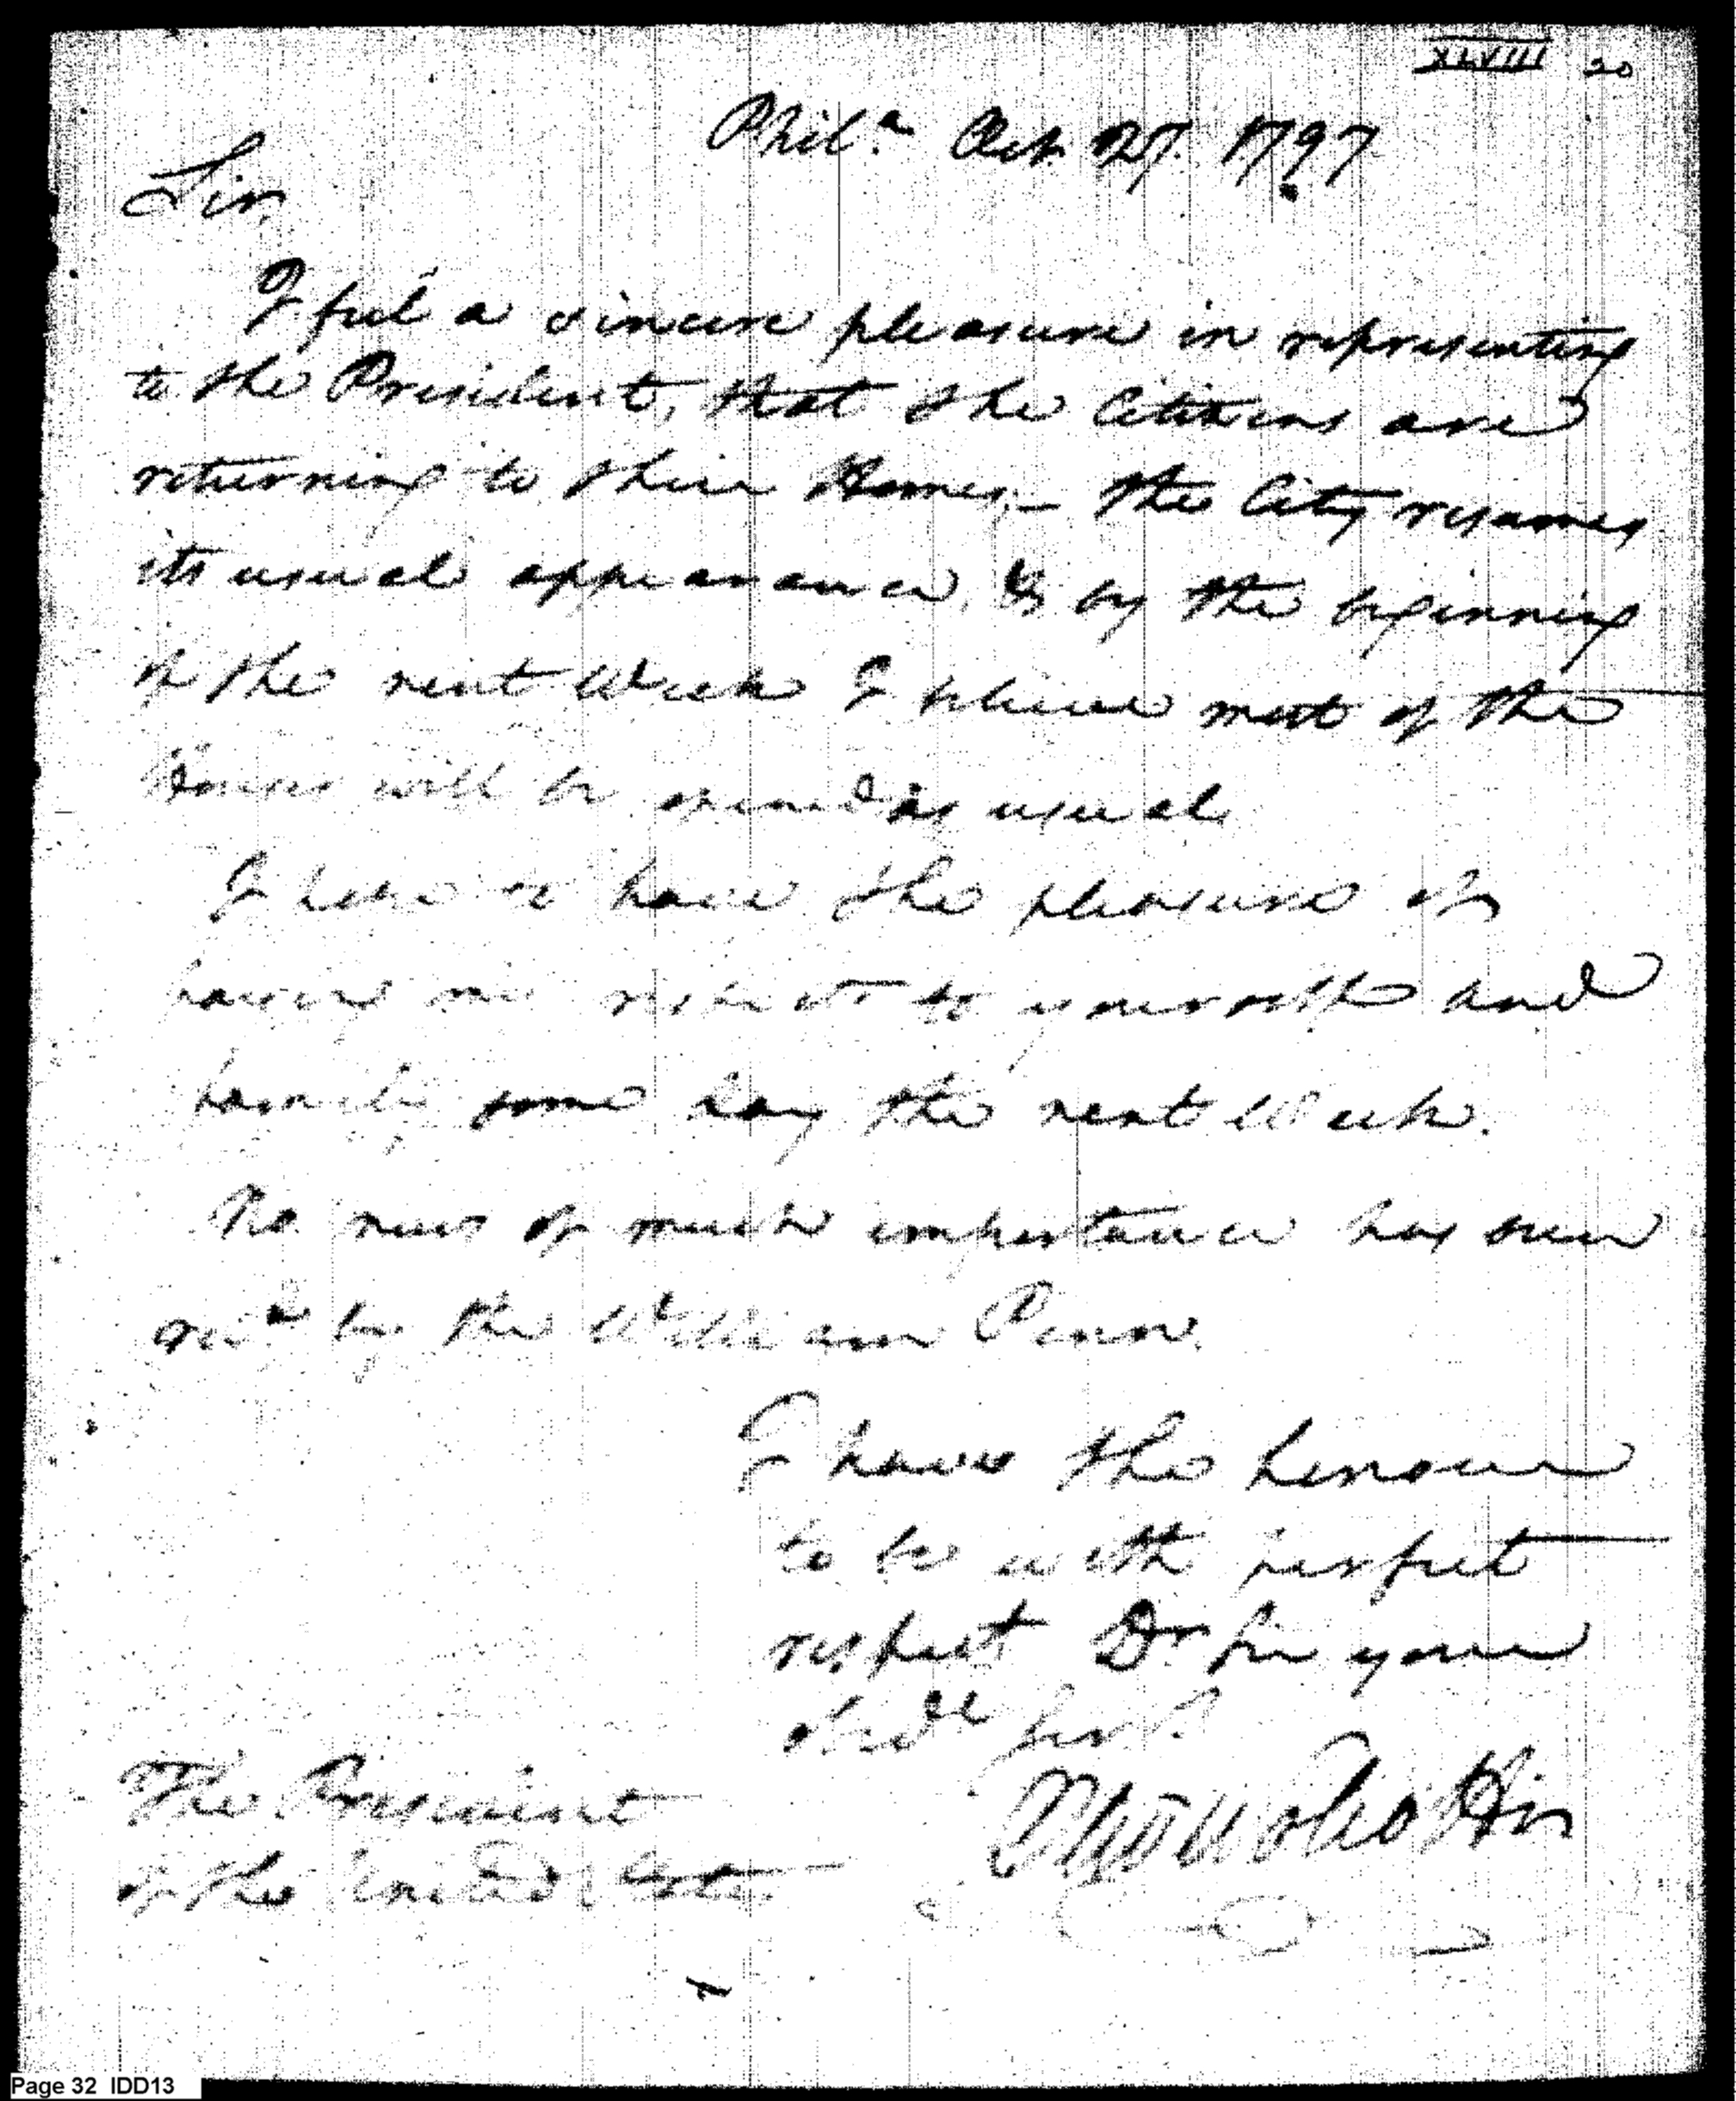 XLVIII 20
Phil.ª Oct. 27. 1797
Sir,
I feel a sincere pleasure in representing
to the President, that the Citizens are
returning to their Homes.— the City resumes
its usual appearance, & by the beginning
of the next Week I believe most of the
Houses will be opened as usual.
I hope to have the pleasure of
paying my respects to yourself and
family some day the next Week.
No news of much importance has been
rec.ᵈ by the William Penn.
I have the honour
to be with perfect
respect Dr Sir your
obedᵗ Servᵗ
The President
of the United States
Page 32 IDD13